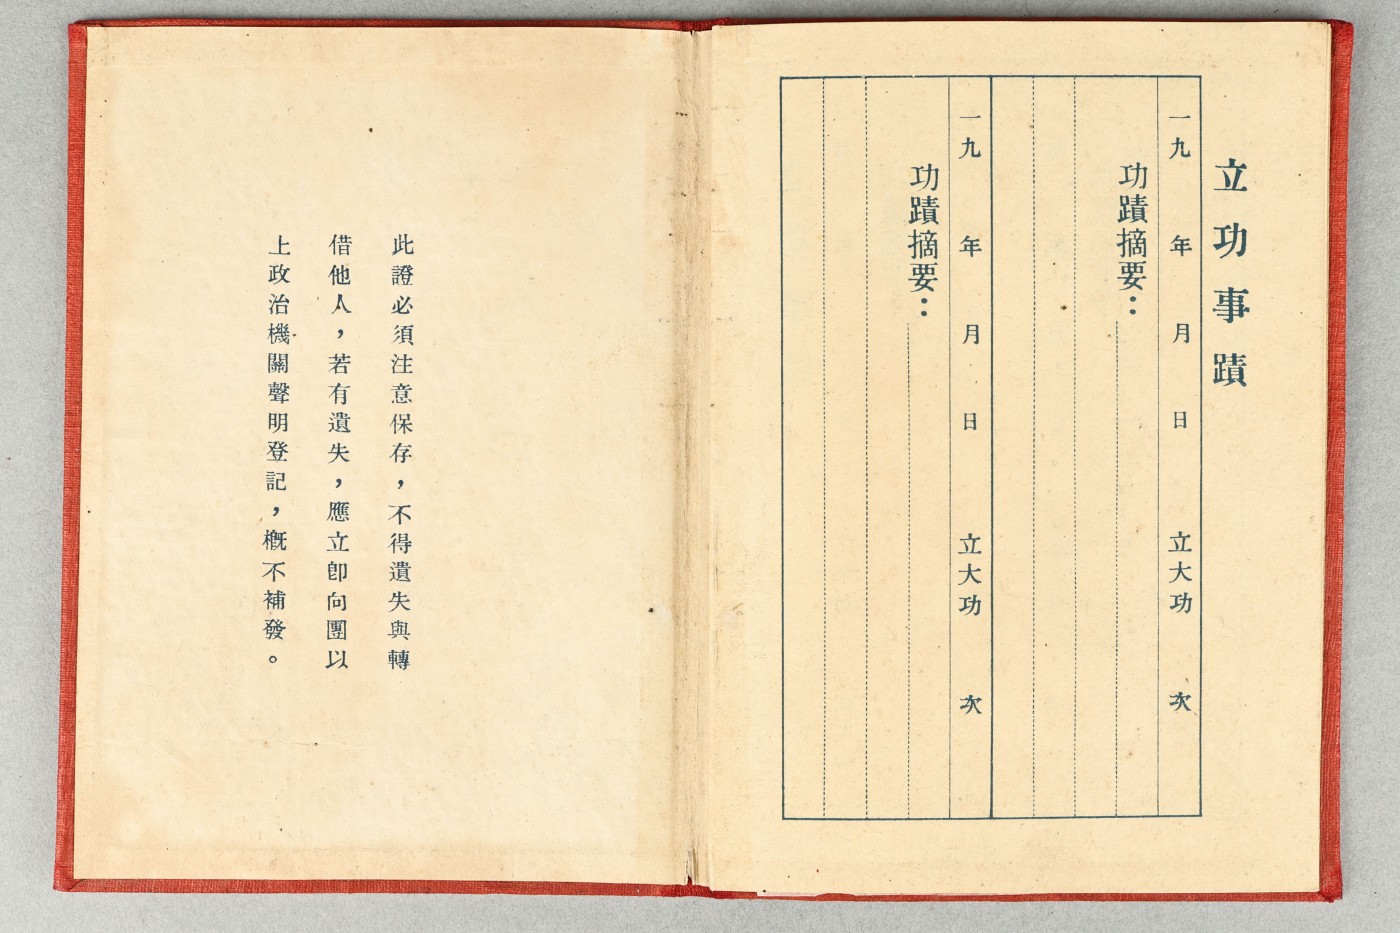 立功事蹟
一九　年　月　日　立大功　次
功蹟摘要：
一九　年　月　日　立大功　次
功蹟摘要：
此證必須注意保存，不得遺失與轉
借他人，若有遺失，應立卽向團以
上政治機關聲明登記，槪不補發。